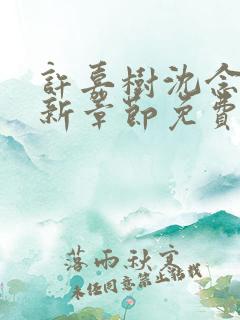 許嘉樹沈念
新章節免費
落雨秋寒
未经同意禁止转载